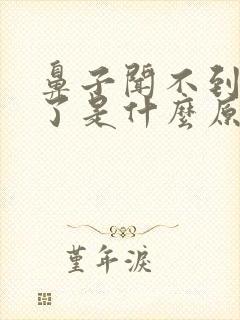 鼻子聞不到
了是什麼原
堇年淚